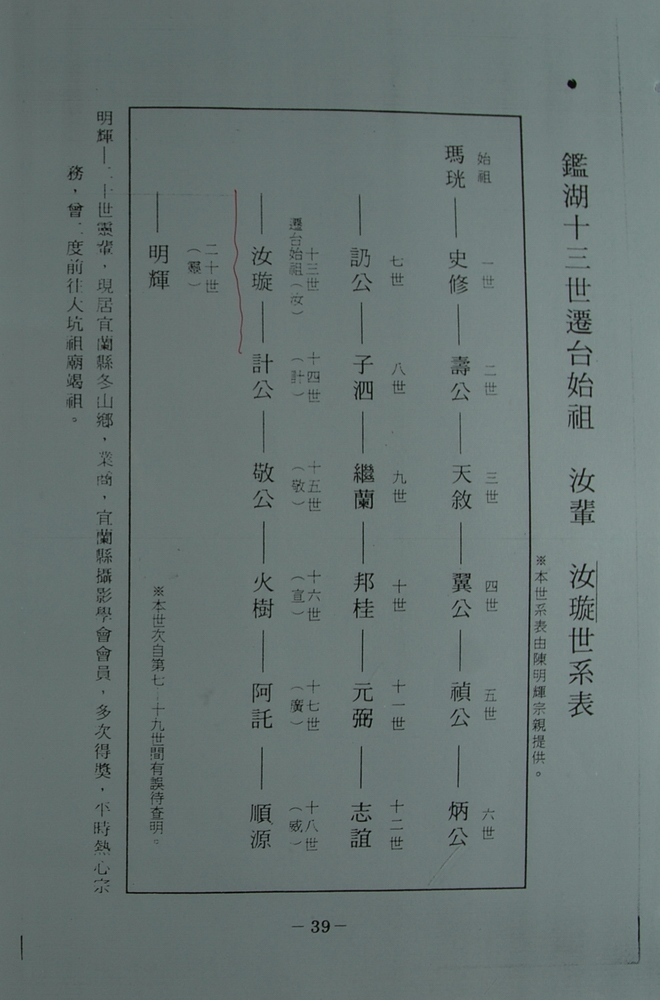 鑑湖十三世遷台始祖 汝輩 汝璇世系表
※本世系表由陳明輝宗親提供。
始祖 一世 二世 三世 四世 五世 六世
瑪珖—史修—壽公—天敘—翼公—禎公—炳公
七世 八世 九世 十世 十一世 十二世
—訒公—子泗—繼蘭—邦桂—元弼—志誼
十三世 十四世 十五世 十六世 十七世 十八世
遷台始祖(汝) (計) (敬) (宣) (廣) (威)
—汝璇—計公—敬公—火樹—阿託—順源
二十世
(靈)
—明輝
※本世次自第七-十九世間有誤待查明。
明輝—二十世靈輩,現居宜蘭縣冬山鄉、業商,宜蘭縣攝影學會會員,多次得獎,平時熱心宗
務,曾二度前往大坑祖廟竭祖。
-39-